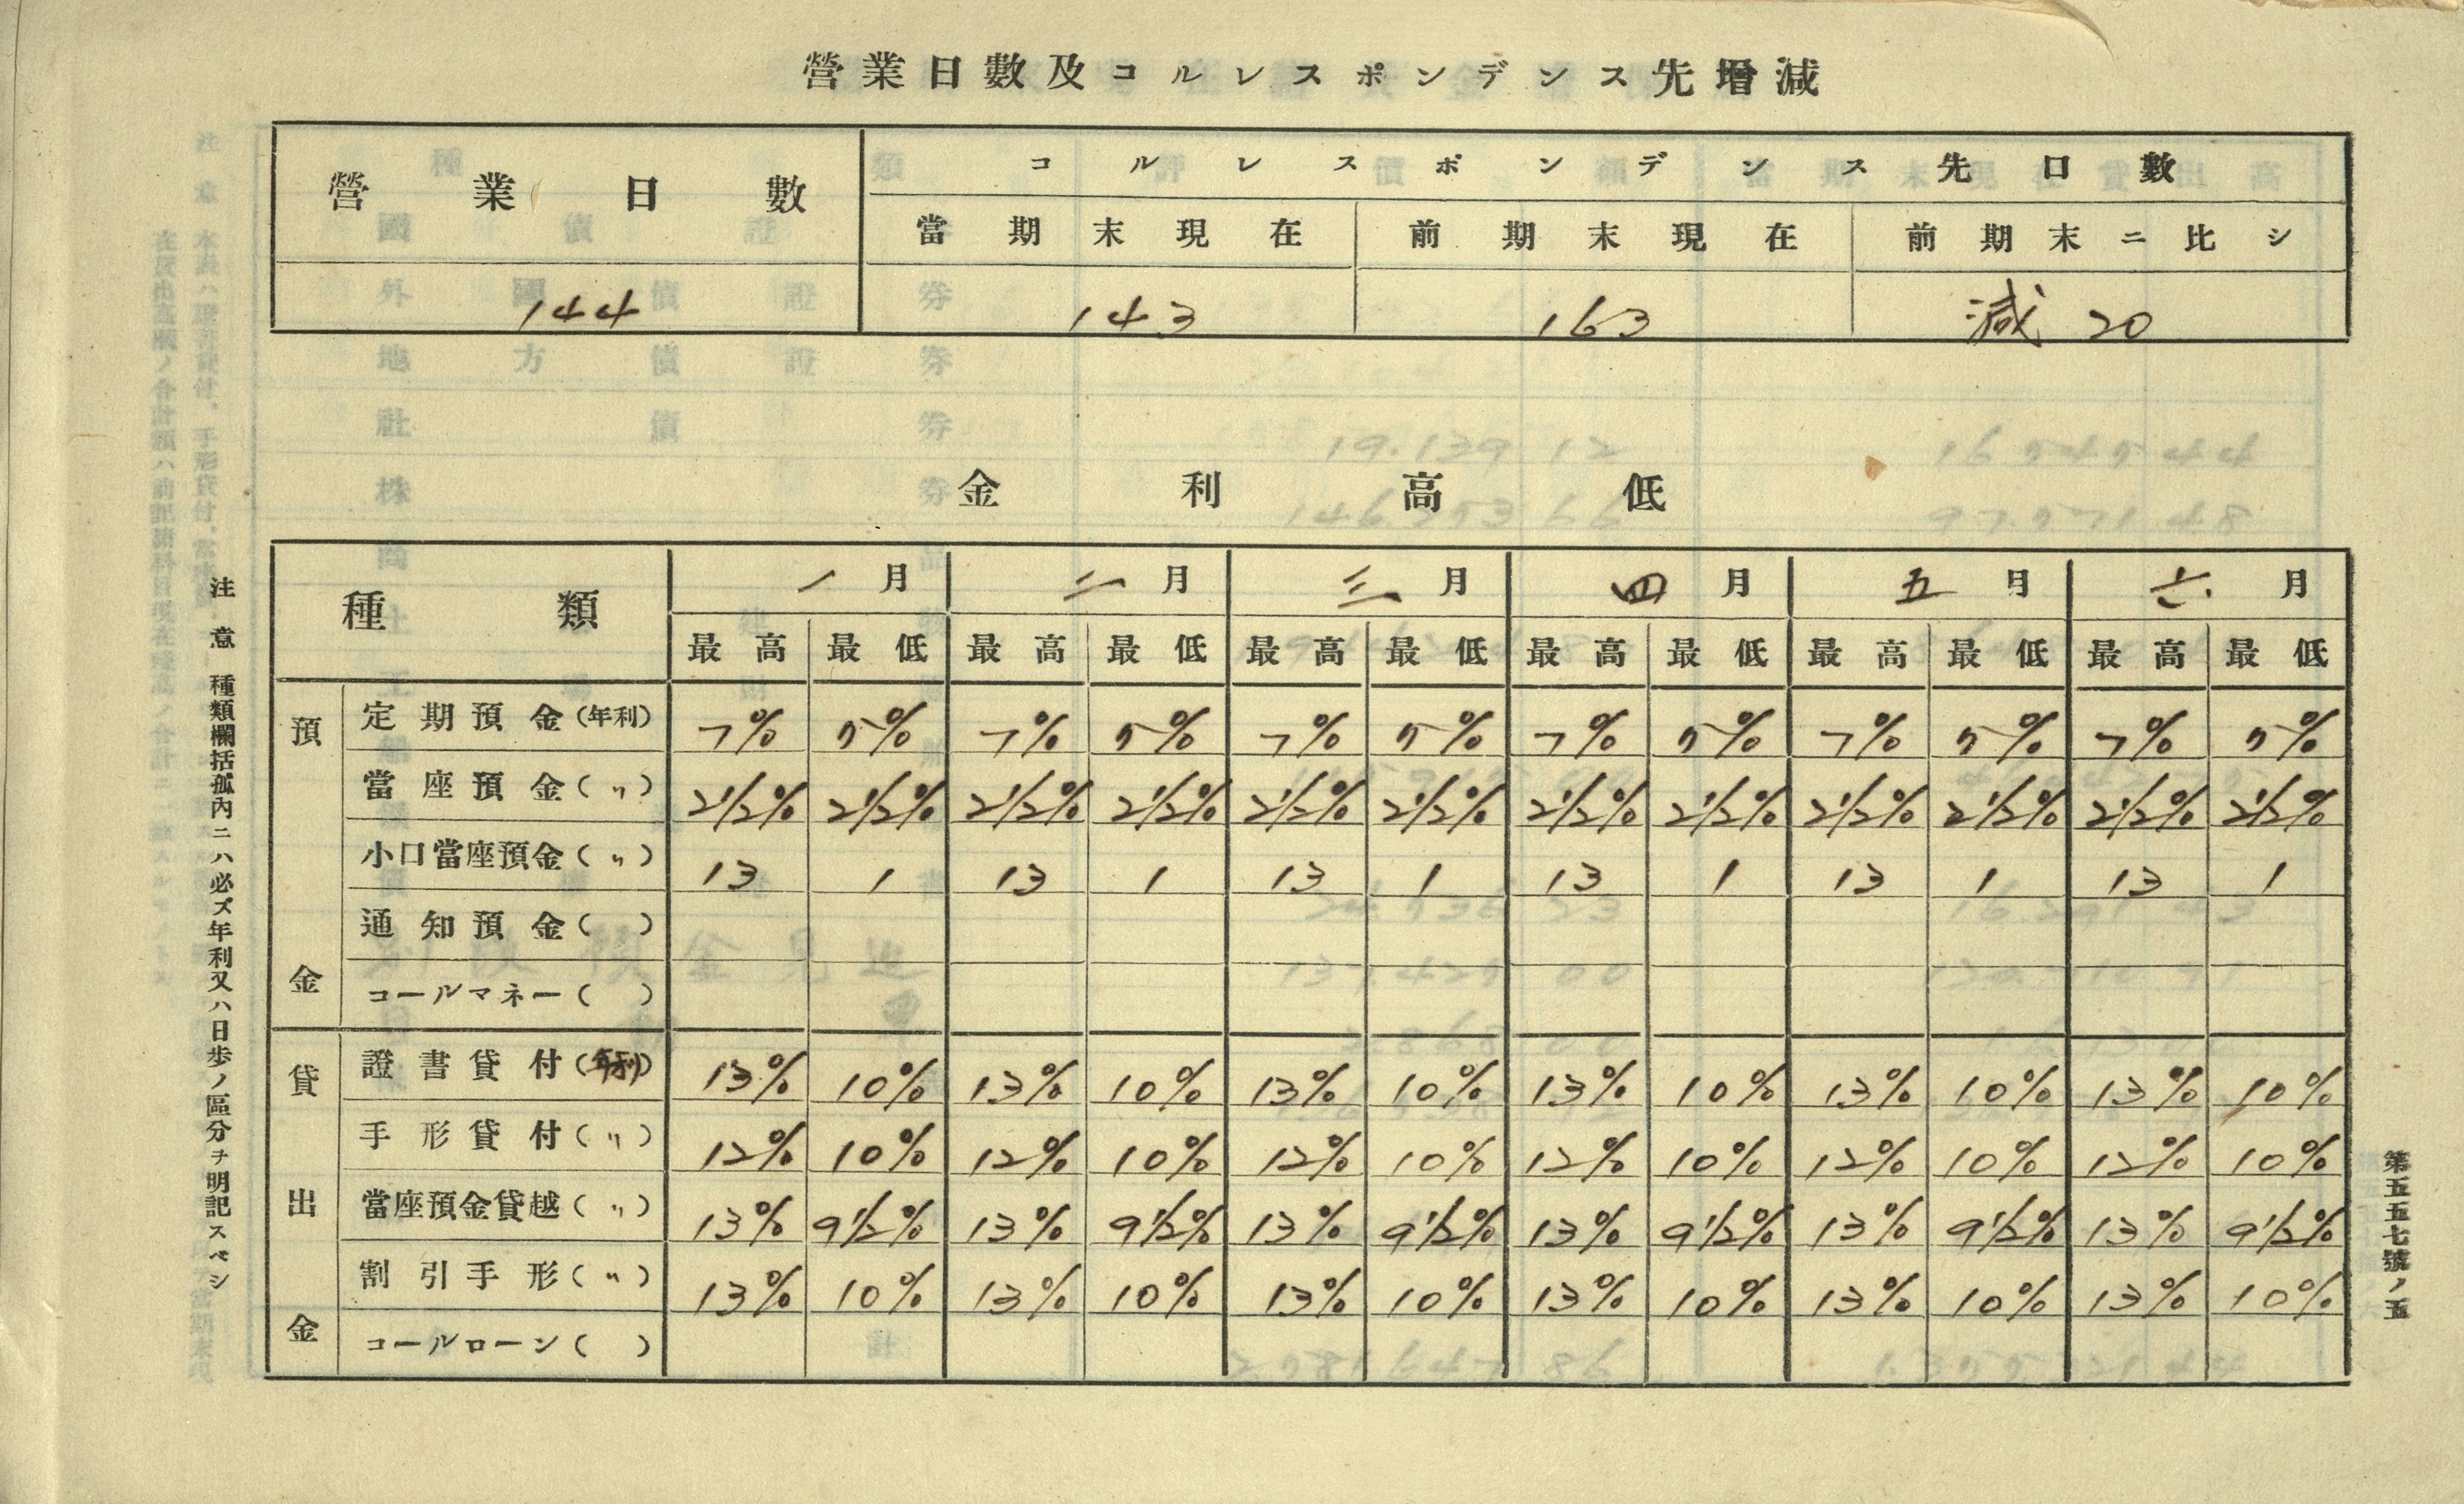 營業日數及コルレスポンデンス先增減
營業日數 コルレスポンデンス先口數
當期末現在 前期末現在 前期末ニ比シ
144 143 163 減 20
金利高低
種類 一月 二月 三月 四月 五月 六月
最高 最低 最高 最低 最高 最低 最高 最低 最高 最低 最高 最低
預金
定期預金(年利) 7% 5% 7% 5% 7% 5% 7% 5% 7% 5% 7% 5%
當座預金(〃) 2 1/2% 2 1/2% 2 1/2% 2 1/2% 2 1/2% 2 1/2% 2 1/2% 2 1/2% 2 1/2% 2 1/2% 2 1/2% 2 1/2%
小口當座預金(〃) 13 1 13 1 13 1 13 1 13 1 13 1
通知預金( )
コールマネー( )
貸出金
證書貸付(年利) 13% 10% 13% 10% 13% 10% 13% 10% 13% 10% 13% 10%
手形貸付(〃) 12% 10% 12% 10% 12% 10% 12% 10% 12% 10% 12% 10%
當座預金貸越(〃) 13% 9 1/2% 13% 9 1/2% 13% 9 1/2% 13% 9 1/2% 13% 9 1/2% 13% 9 1/2%
割引手形(〃) 13% 10% 13% 10% 13% 10% 13% 10% 13% 10% 13% 10%
コールローン( )
注意 種類欄括孤內ニハ必ズ年利又ハ日步ノ區分ヲ明記スベシ
第五五七號ノ五